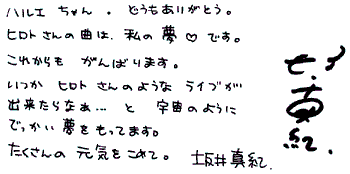 ハルエ ちゃん . どうもありがとう。
ヒロトさんの曲は、私の夢♡です。
これからも がんばります。
いつか ヒロトさんのような ライブが
出来たらなぁ... と 宇宙のように
でっかい夢をもってます。
たくさんの 元気をこめて。 坂井真紀.
真紀.